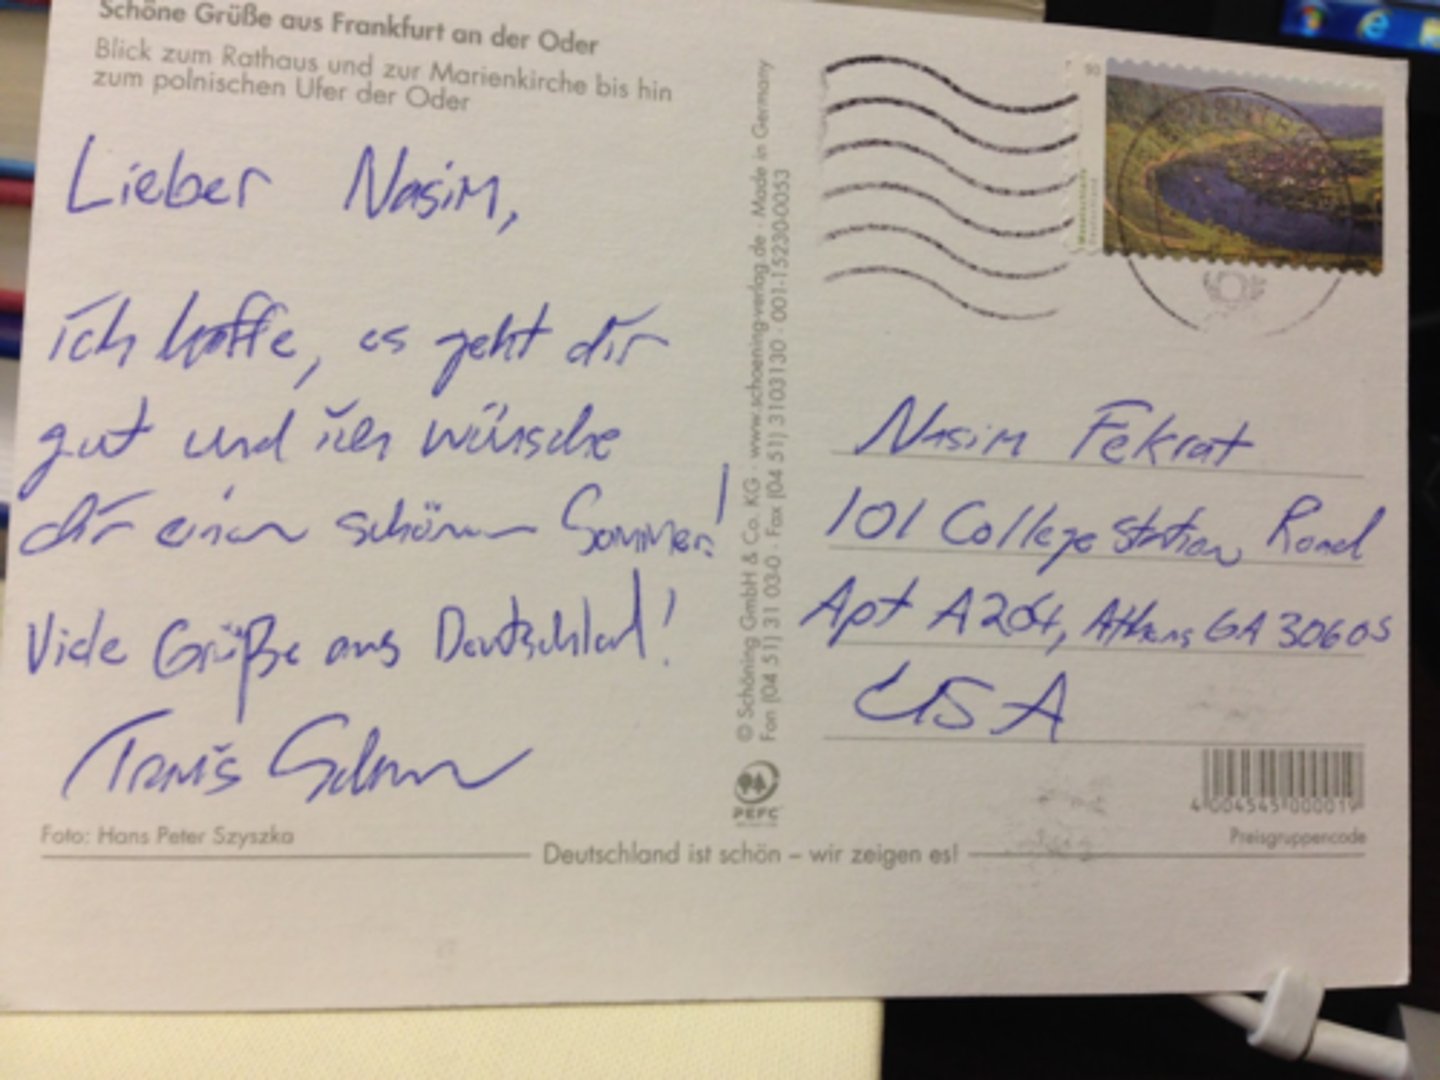 Schöne Grüße aus Frankfurt an der Oder
Blick zum Rathaus und zur Marienkirche bis hin
zum polnischen Ufer der Oder
Lieber Nasim,
ich hoffe, es geht dir
gut und ich wünsche
dir einen schönen Sommer!
Viele Grüße aus Deutschland!
Travis
Foto: Hans Peter Szyszka
© Schöning GmbH & Co. KG · www.schoening-verlag.de · Made in Germany
Fon (04 51) 31 03-0 · Fax (04 51) 3103130 · 001-15230-0053
PEFC
90
Deutschland
Nasim Fekrat
101 College Station Road
Apt A204, Athens GA 30605
USA
4 004545 000019
Preisgruppencode
Deutschland ist schön – wir zeigen es!